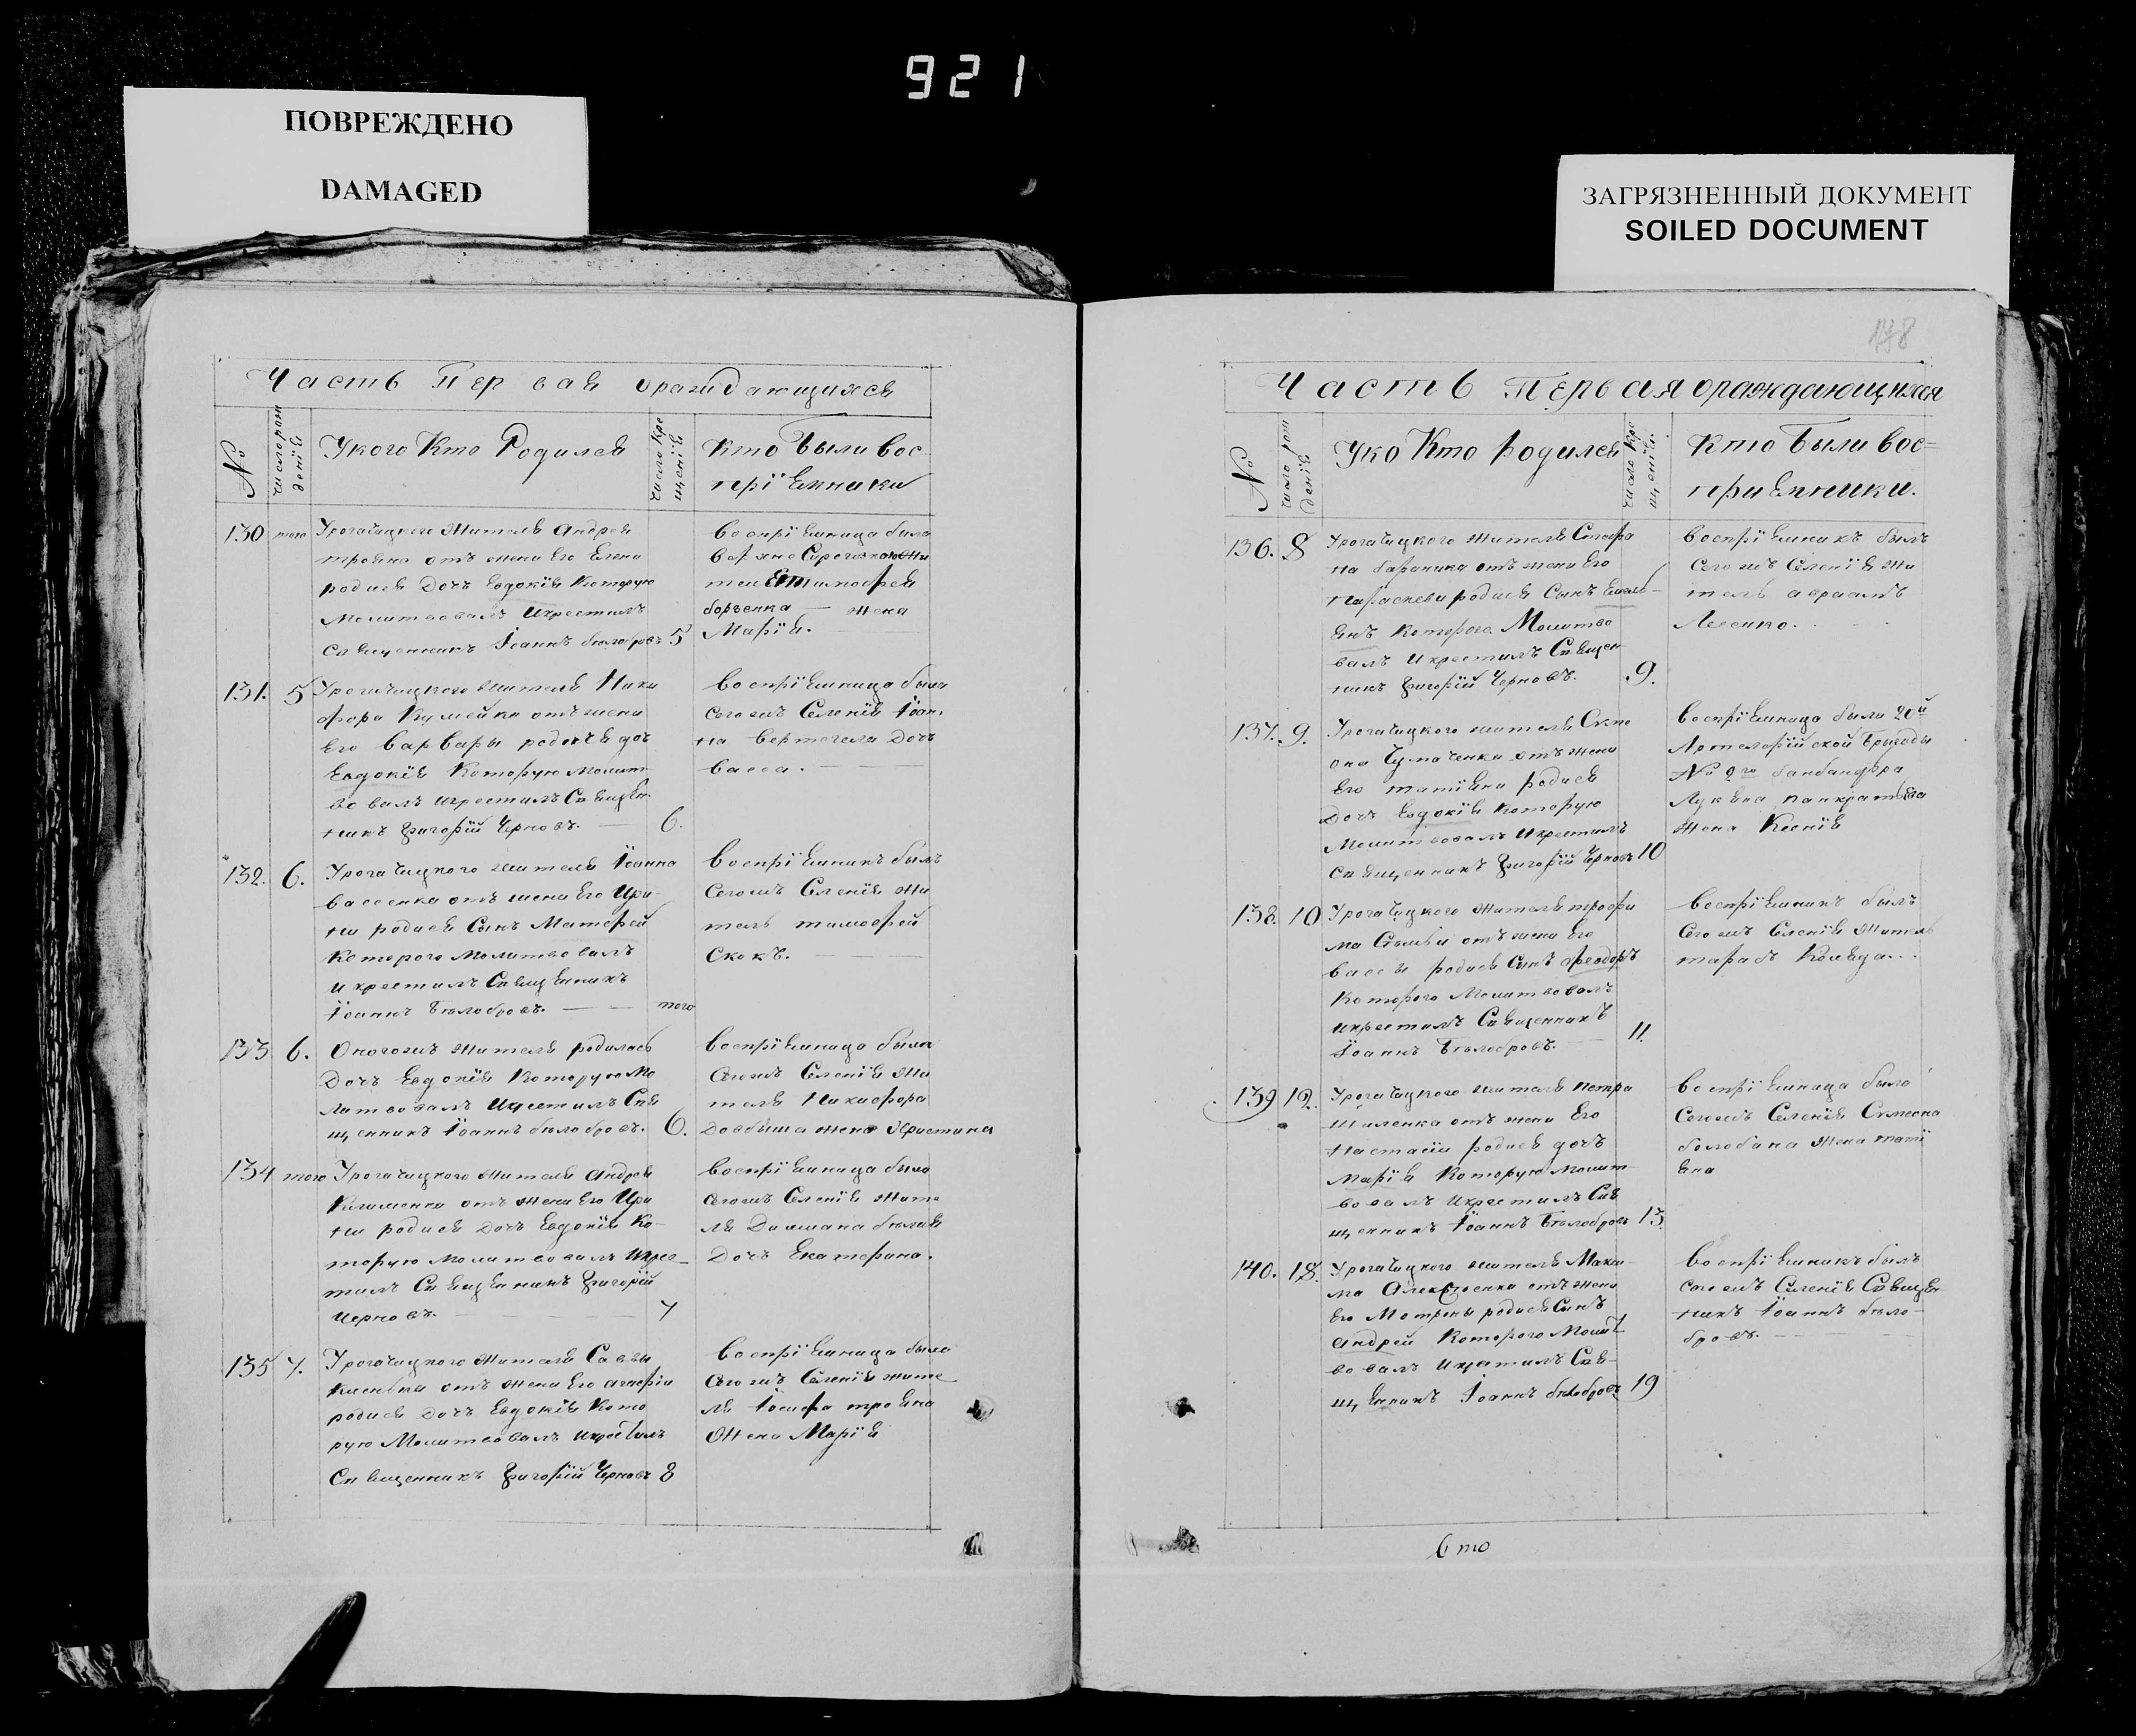 921
ПОВРЕЖДЕНО
DAMAGED
ЗАГРЯЗНЕННЫЙ ДОКУМЕНТ
SOILED DOCUMENT
Часть Пер вая ораждающихся
№
число рож
денія
Укого Кто Родился
число кре
щенія
кто были вос
пріемники
130 того Урогачицкого жителя Андрея
трояна отъ жены Его Елены
родися Дочь Евдокія Которую
Молитвовалъ Икрестилъ
Священникъ Іоаннъ белобровъ 5
воспріемница была
жи
теля тимофея
боръенка — жена
Марія.
131. 5 Урогачицкого жителя Ники
фора Кулейки отъ жены
Его варвары родися доч
Евдокія Которую молит
вовалъ икрестилъ Священ
никъ Григорій Черновъ. — 6.
воспріемница была
сегожъ Селенія Іоан
на вертегела Дочь
васса.
132. 6. Урогачицкого жителя Іоанна
васенка отъ жены Его Ири
ны родися Сынъ Матфей
Которого Молитвовалъ
и крестилъ Священникъ
Іоаннъ Белобровъ. — того
воспріемникъ былъ
Сегожъ Селенія Жи
тель тимофей
Скокъ.
133 6. Оногожъ жителя родилась
Дочь Евдокія Которую Мо
литвовалъ Икрестилъ Свя
щенникъ Іоаннъ белобровъ. 6.
воспріемница была
Сегожъ Селенія Жи
теля Никифора
Довбиша жена Христина
134 того Урогачицкого Жителя Андрея
Клименка отъ Жены Его Ири
ны родися Дочь Евдокія Ко-
торую молитвовалъ Икрес-
тилъ Священникъ Григорій
Черновъ. 7
воспріемница была
Сегожъ Селенія Жите
ля Дамiана белая
Дочь Екатерина.
135 7. Урогачицкого Жителя Саввы
отъ жены Его Агафіи
родися Дочь Евдокія Кото
рую Молитвовалъ Икрестилъ
Священникъ Григорій Черновъ 8
воспріемница была
Сегожъ Селенія жите
ля Іосифа трояна
Жена Марія
178
Часть Первая ораждающихся
№
число рож
денія
Уко Кто родился
число кре
щенія.
кто были вос=
приемники.
136. 8 Урогачицкого жителя Стефа
на бараника отъ жены Его
Параскеви родися Сынъ Емель-
янъ Которого Молитво
валъ Икрестилъ Священ
никъ Григорій Черновъ. 9.
воспріемникъ былъ
Сегожъ Селенія Жи
тель авраамъ
Лесенко.
137. 9. Урогачицкого жителя
Чумаченка отъ жены
Его татіяни родися
Дочь Евдокія Которую
Молитвовалъ Икрестилъ
Священникъ Григорій Черновъ 10
воспріемница была 20й
Артелерійской бригады
№ 2го банбандера
Лукяна панкратьева
жена Ксенія
138. 10 Урогачицкого Жителя трофи
ма отъ жены Его
вассы родися Сынъ Феодоръ
Которого Молитвовалъ
икрестилъ Священникъ
Іоаннъ Белобровъ. 11.
воспріемникъ былъ
Сегожъ Селенія Житель
тарасъ Коляда...
139 12. Урогачицкого жителя петра
шиленка отъ жены Его
Настасіи родися дочь
Марія Которую Молит-
вовалъ Икрестилъ Свя
щенникъ Іоаннъ Белобровъ 13.
воспріемница была
Сегожъ Селенія Симеона
болобана жена таті
яна
140. 18. Урогачицкого жителя Макси
ма Алексеенка отъ жены
Его Мотроны родися Сынъ
Андрей Которого Молит
вовалъ Икрестилъ Свя-
щенникъ Іоаннъ белобровъ 19
воспріемникъ былъ
Сегожъ Селенія Священ
никъ Іоаннъ бело-
бровъ.